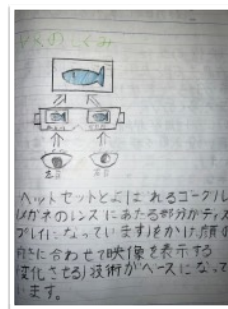 VRのしくみ
左目 右目
ヘットセットとよばれるゴーグル
(メガネのレンズにあたる部分がディス
プレイになっています)をかけ、顔の
向きに合わせて映像を表示する
(変化させる)技術がベースになって
います。